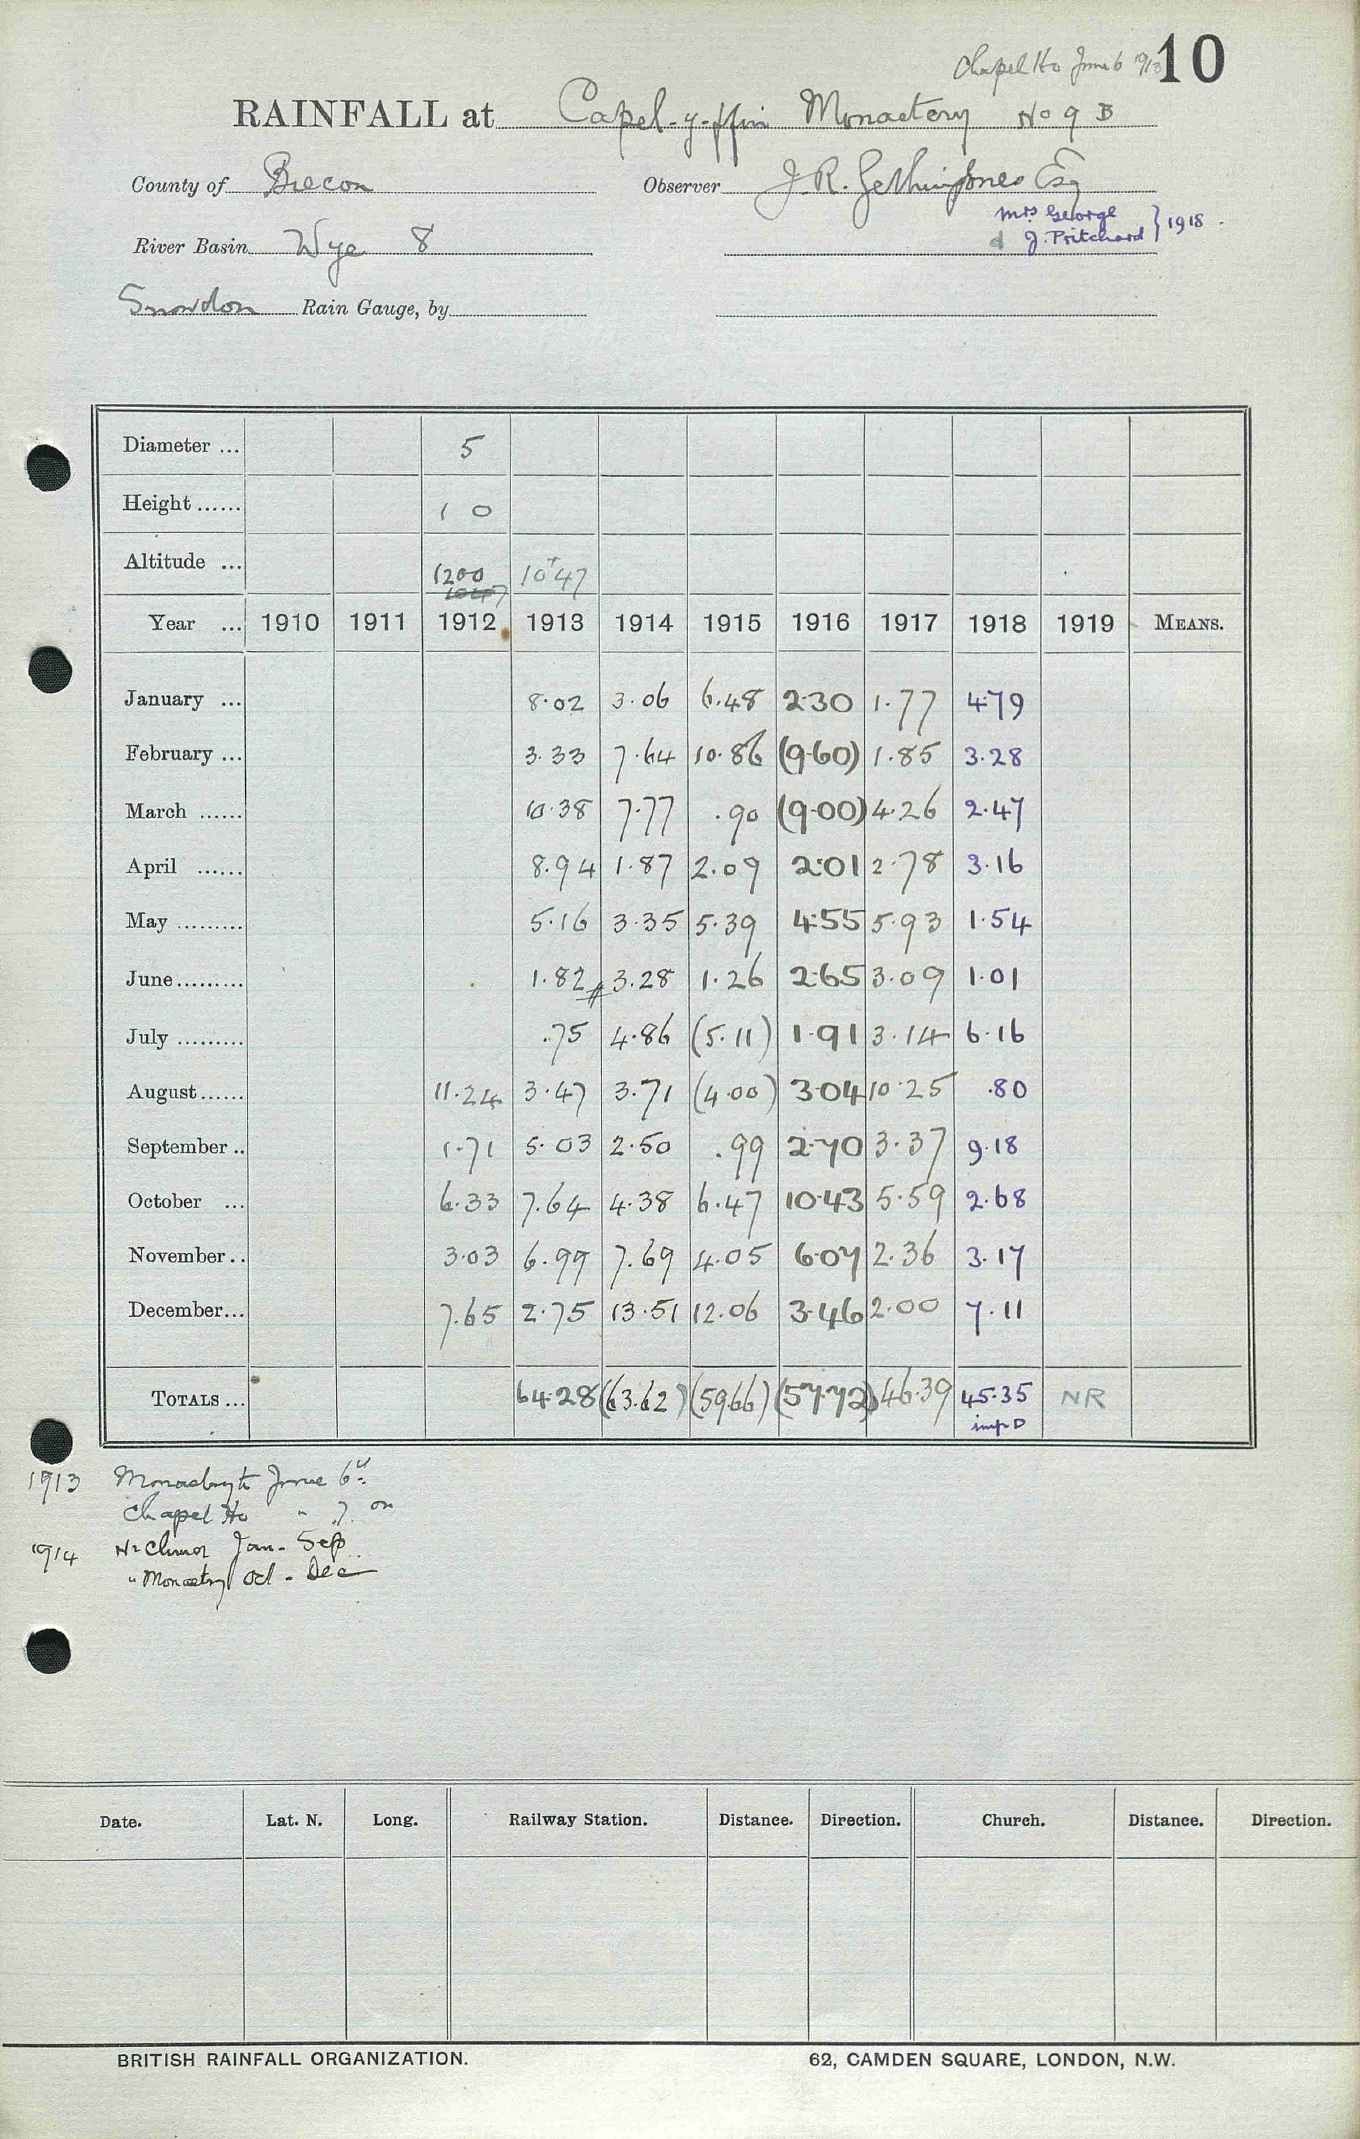 Chapel Ho June 6 1913 10
RAINFALL at Capel-y-ffin Monastery No 9 B
County of Brecon Observer J. R. Gethin Jones Esq
Mrs George
River Basin Wye 8 J. Pritchard } 1918.
Snowdon Rain Gauge, by
Diameter ... 5
Height ...... 1 0
Altitude ... 1200 1047+
1047
Year ... 1910 1911 1912 1913 1914 1915 1916 1917 1918 1919 MEANS.
January ... 8.02 3.06 6.48 2.30 1.77 4.79
February ... 3.33 7.64 10.86 (9.60) 1.85 3.28
March ...... 10.38 7.77 .90 (9.00) 4.26 2.47
April ...... 8.94 1.87 2.09 2.01 2.78 3.16
May ......... 5.16 3.35 5.39 4.55 5.93 1.54
June......... 1.82 3.28 1.26 2.65 3.09 1.01
July ......... .75 4.86 (5.11) 1.91 3.14 6.16
August...... 11.24 3.47 3.71 (4.00) 3.04 10.25 .80
September .. 1.71 5.03 2.50 .99 2.70 3.37 9.18
October ... 6.33 7.64 4.38 6.47 10.43 5.59 2.68
November .. 3.03 6.99 7.69 4.05 6.07 2.36 3.17
December... 7.65 2.75 13.51 12.06 3.46 2.00 7.11
TOTALS ... 64.28 (63.62) (59.66) (57.72) 46.39 45.35 NR
imp D
1913 Monastery to June 6th
Chapel Ho " 7 on
1914 Jan - Sep
" Monastery Oct - Dec
Date. Lat. N. Long. Railway Station. Distance. Direction. Church. Distance. Direction.
BRITISH RAINFALL ORGANIZATION. 62, CAMDEN SQUARE, LONDON, N.W.